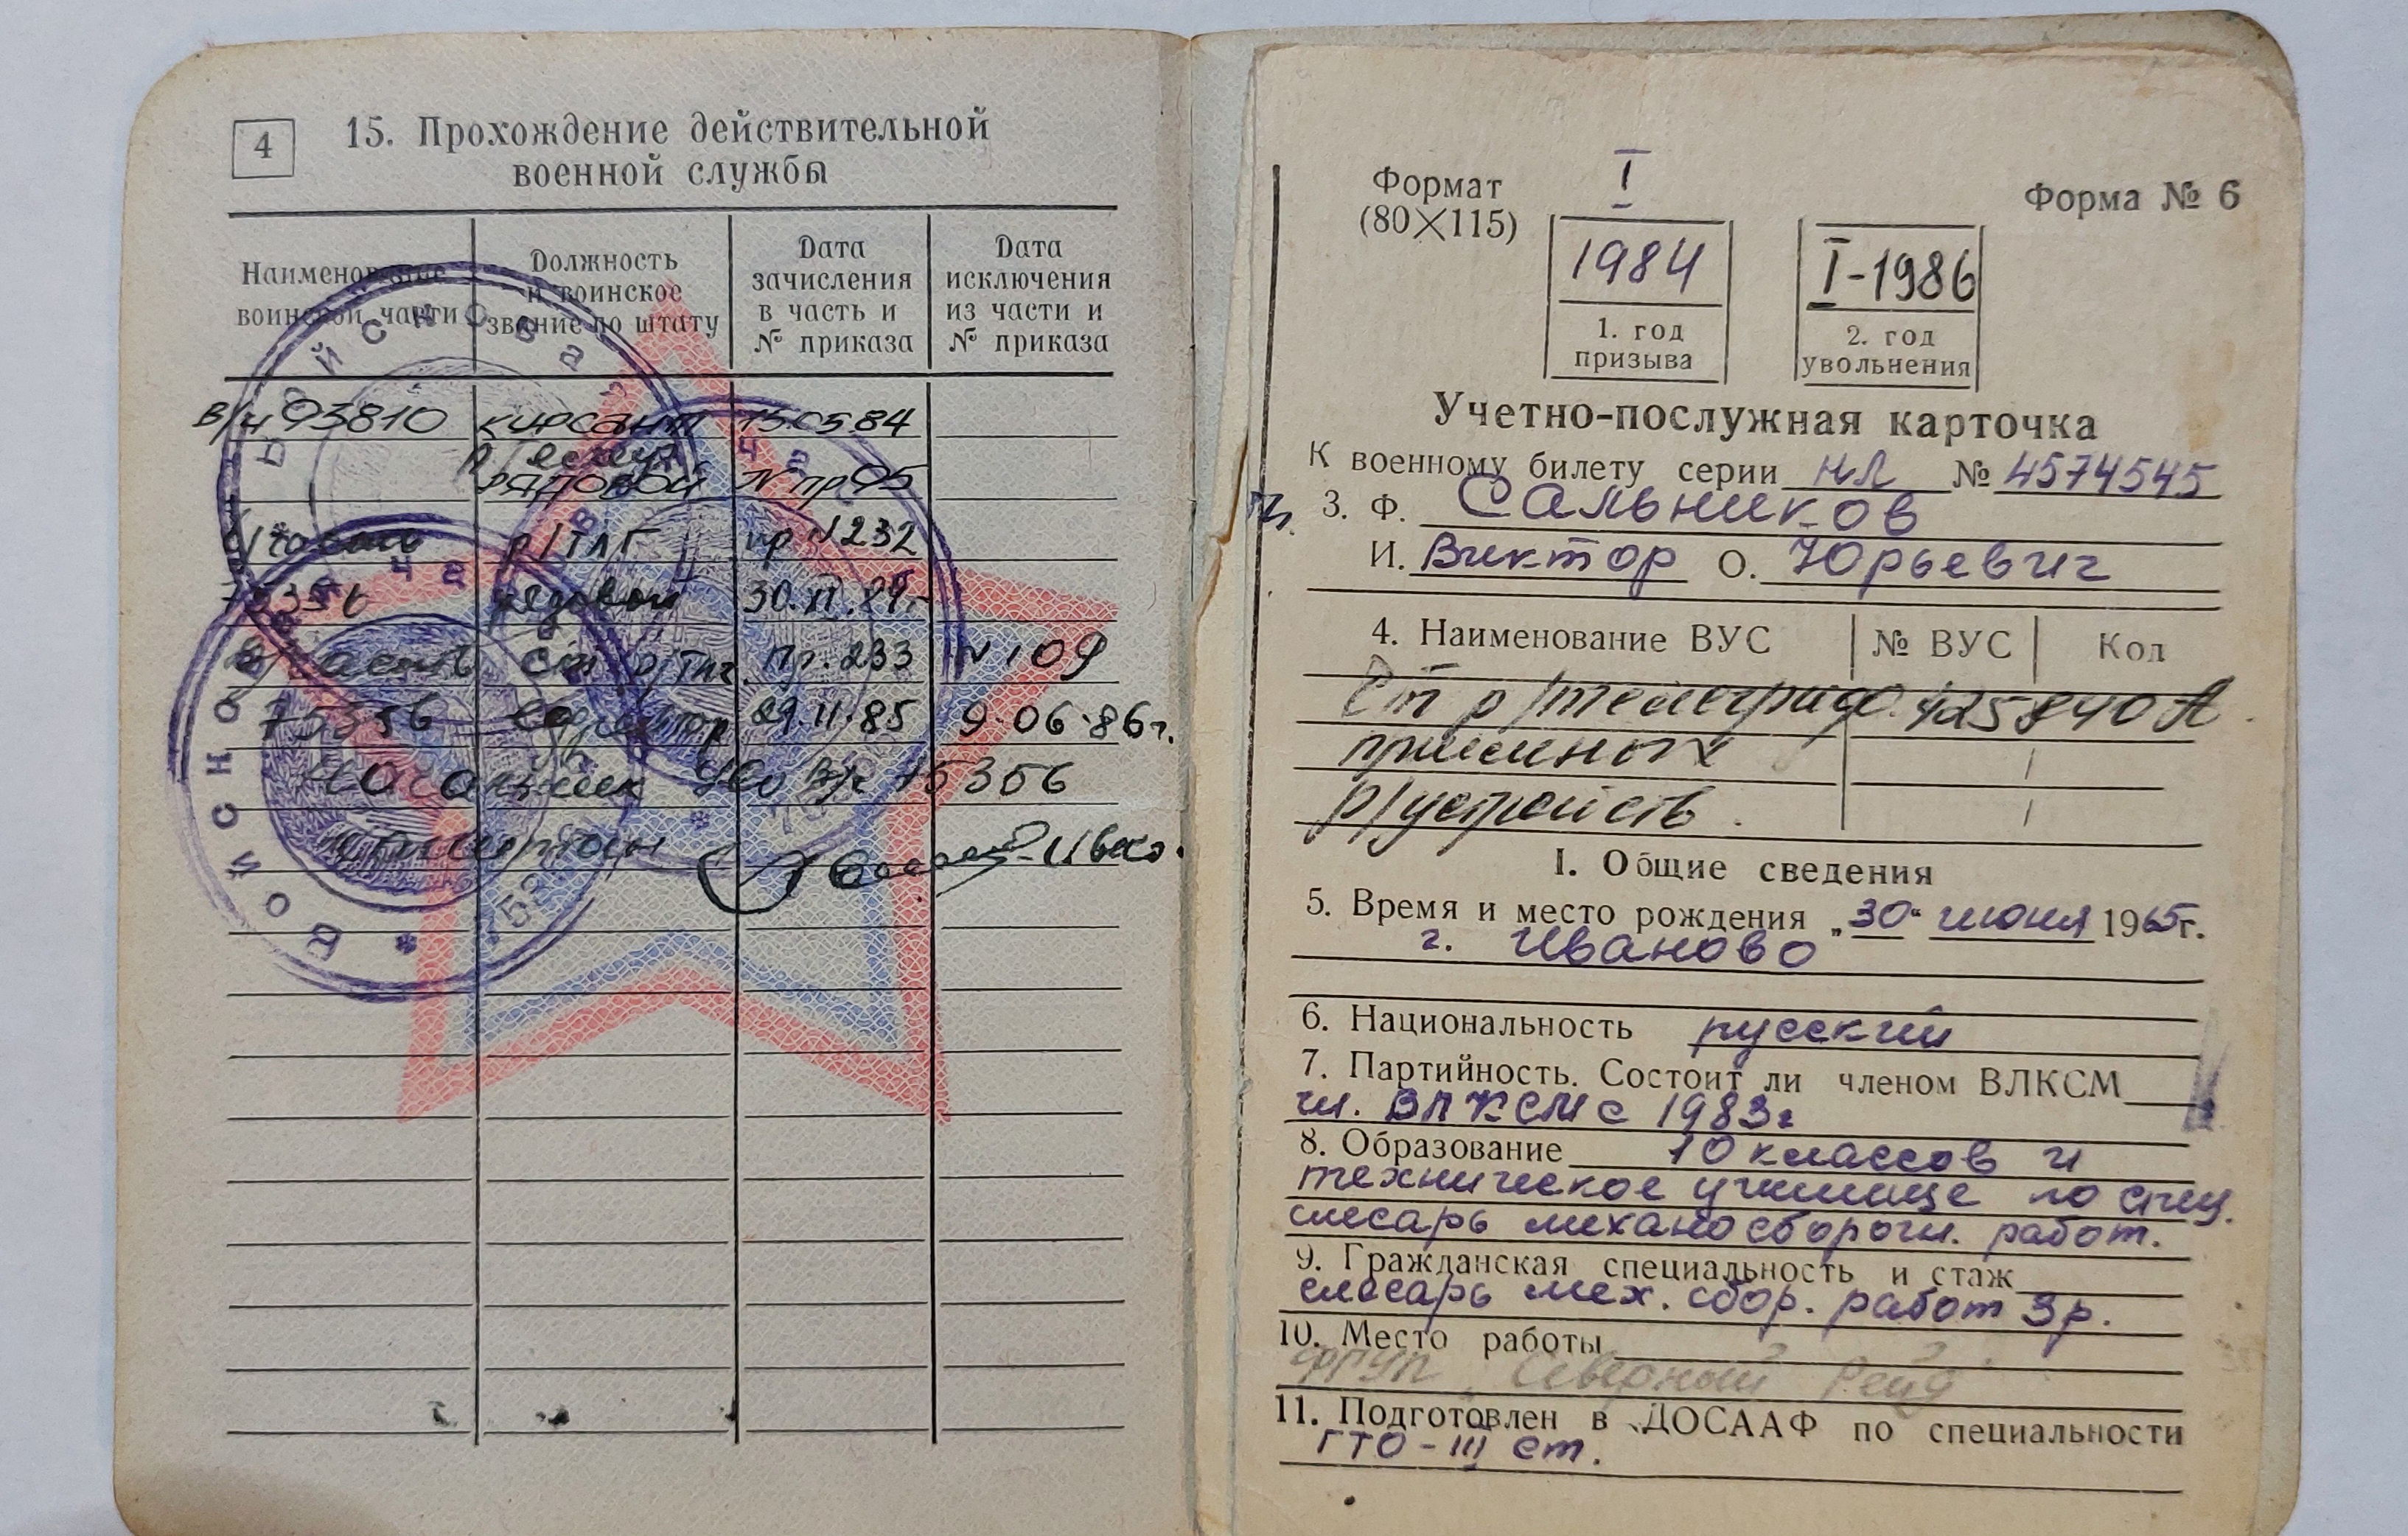 4
15. Прохождение действительной
военной службы
Наименование
воинской части
Должность
и воинское
звание по штату
Дата
зачисления
в часть и
№ приказа
Дата
исключения
из части и
№ приказа
в/ч 93810 курсант 15 05 84
рядовой № пр 95
р/тлг пр N 232
рядовой 30.XI.84г.
ст р/тлг. пр. 233 N 109
75356 29.11.85 9.06.86г.
Начальник в/ч 75356
капитан
Формат
(80×115)
Форма № 6
I
1984
1. год
призыва
I-1986
2. год
увольнения
Учетно-послужная карточка
К военному билету серии НЛ № 4574545
3. Ф. Сальников
И. Виктор О. Юрьевич
4. Наименование ВУС № ВУС Код
Ст р/телеграф. 425840 А
приемных
р/устройств.
I. Общие сведения
5. Время и место рождения „30“ июня 1965г.
г. Иваново
6. Национальность русский
7. Партийность. Состоит ли членом ВЛКСМ
чл. ВЛКСМ с 1983г
8. Образование 10 классов и
техническое училище по спец.
слесарь механосбороч. работ.
9. Гражданская специальность и стаж
слесарь мех. сбор. работ 3р.
10. Место работы
ФГУП Северный Рейд
11. Подготовлен в ДОСААФ по специальности
ГТО - III ст.